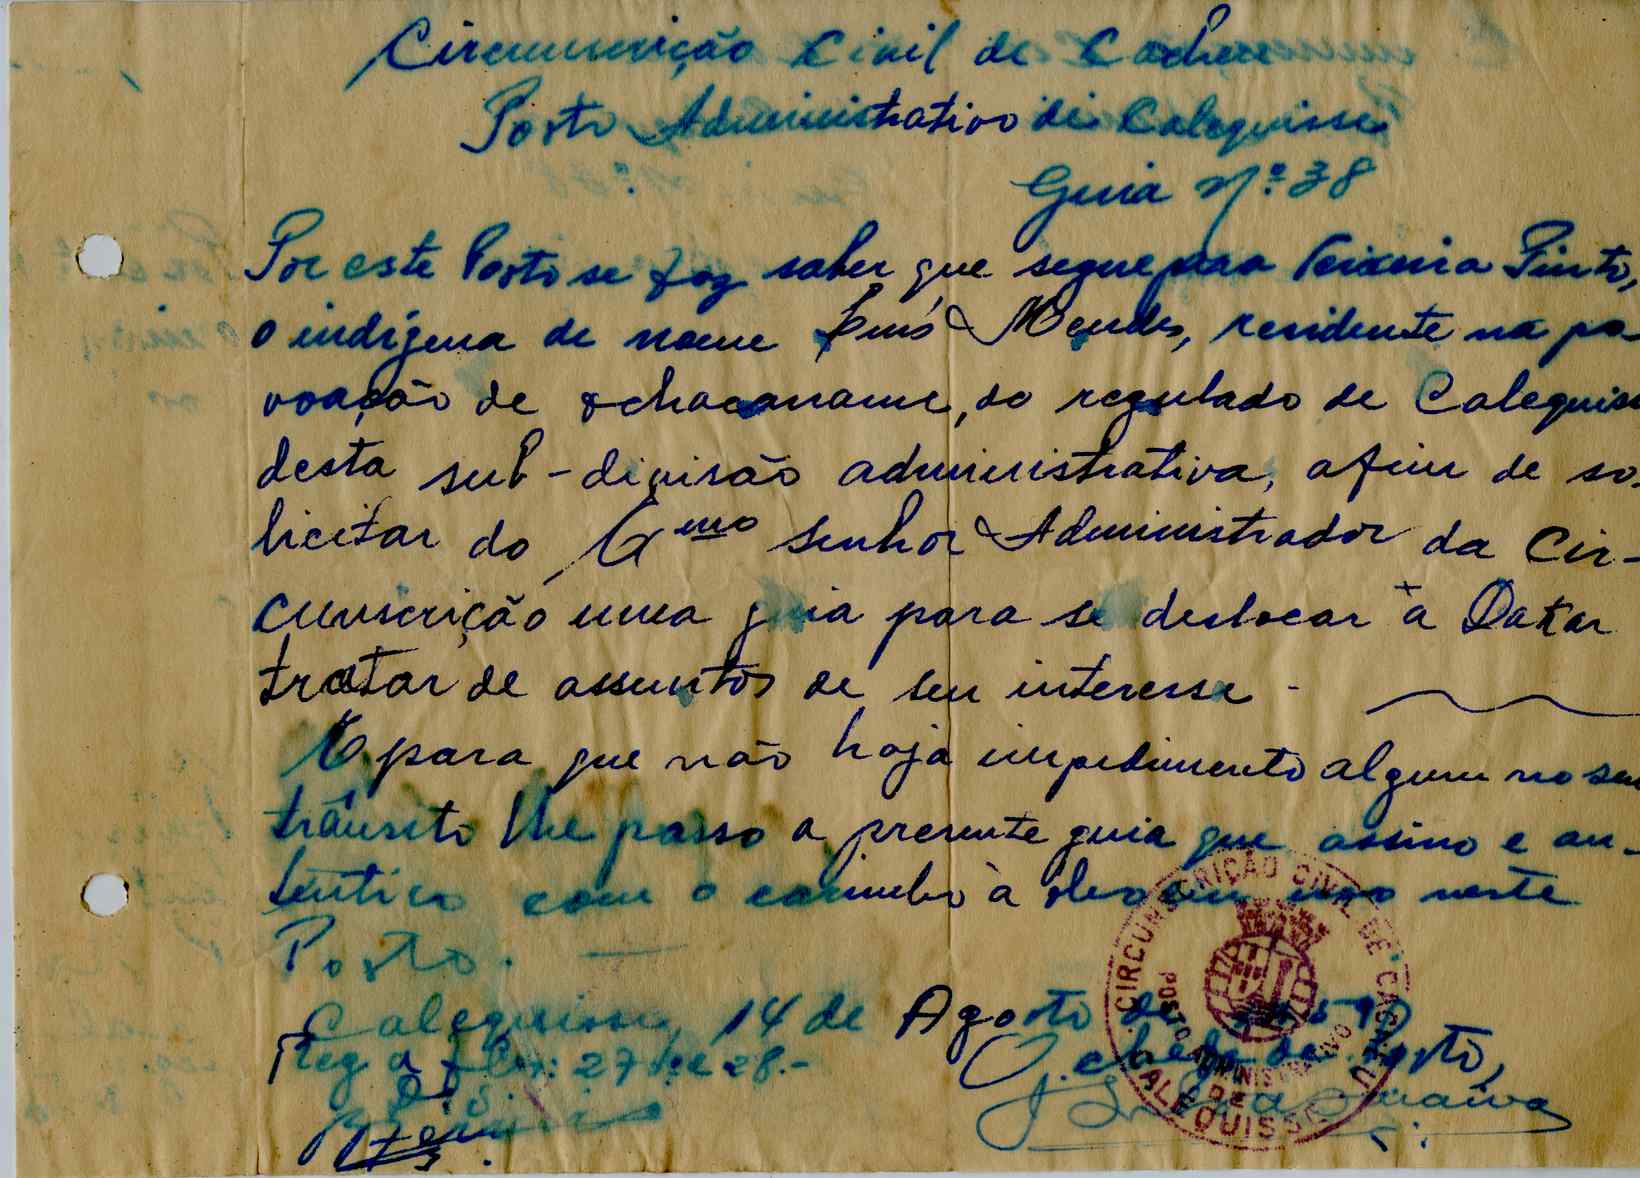 Circunscrição Civil de Cacheu
Posto Administrativo de Calequisse
Guia Nº 38
Por este Posto se faz saber que segue para Teixeira Pinto,
o indígena de nome Luís Mendes, residente na po-
voação de chacaname, do regulado de Calequisse
desta sub-divisão administrativa, afim de so-
licitar do Exmo Senhor Administrador da Cir-
cunscrição uma guia para se deslocar à Dakar
tratar de assuntos de seu interesse.
E para que não haja impedimento algum no seu
trânsito lhe passo a presente guia que assino e au-
tentico com o carimbo à óleo em uso neste
Posto.
Calequisse, 14 de Agosto de
Reg a fls: 27 e 28.-
O chefe de Posto,
CIRCUNSCRIÇÃO CIVIL DE CACHEU
POSTO ADMINISTRATIVO
DE
CALEQUISSE